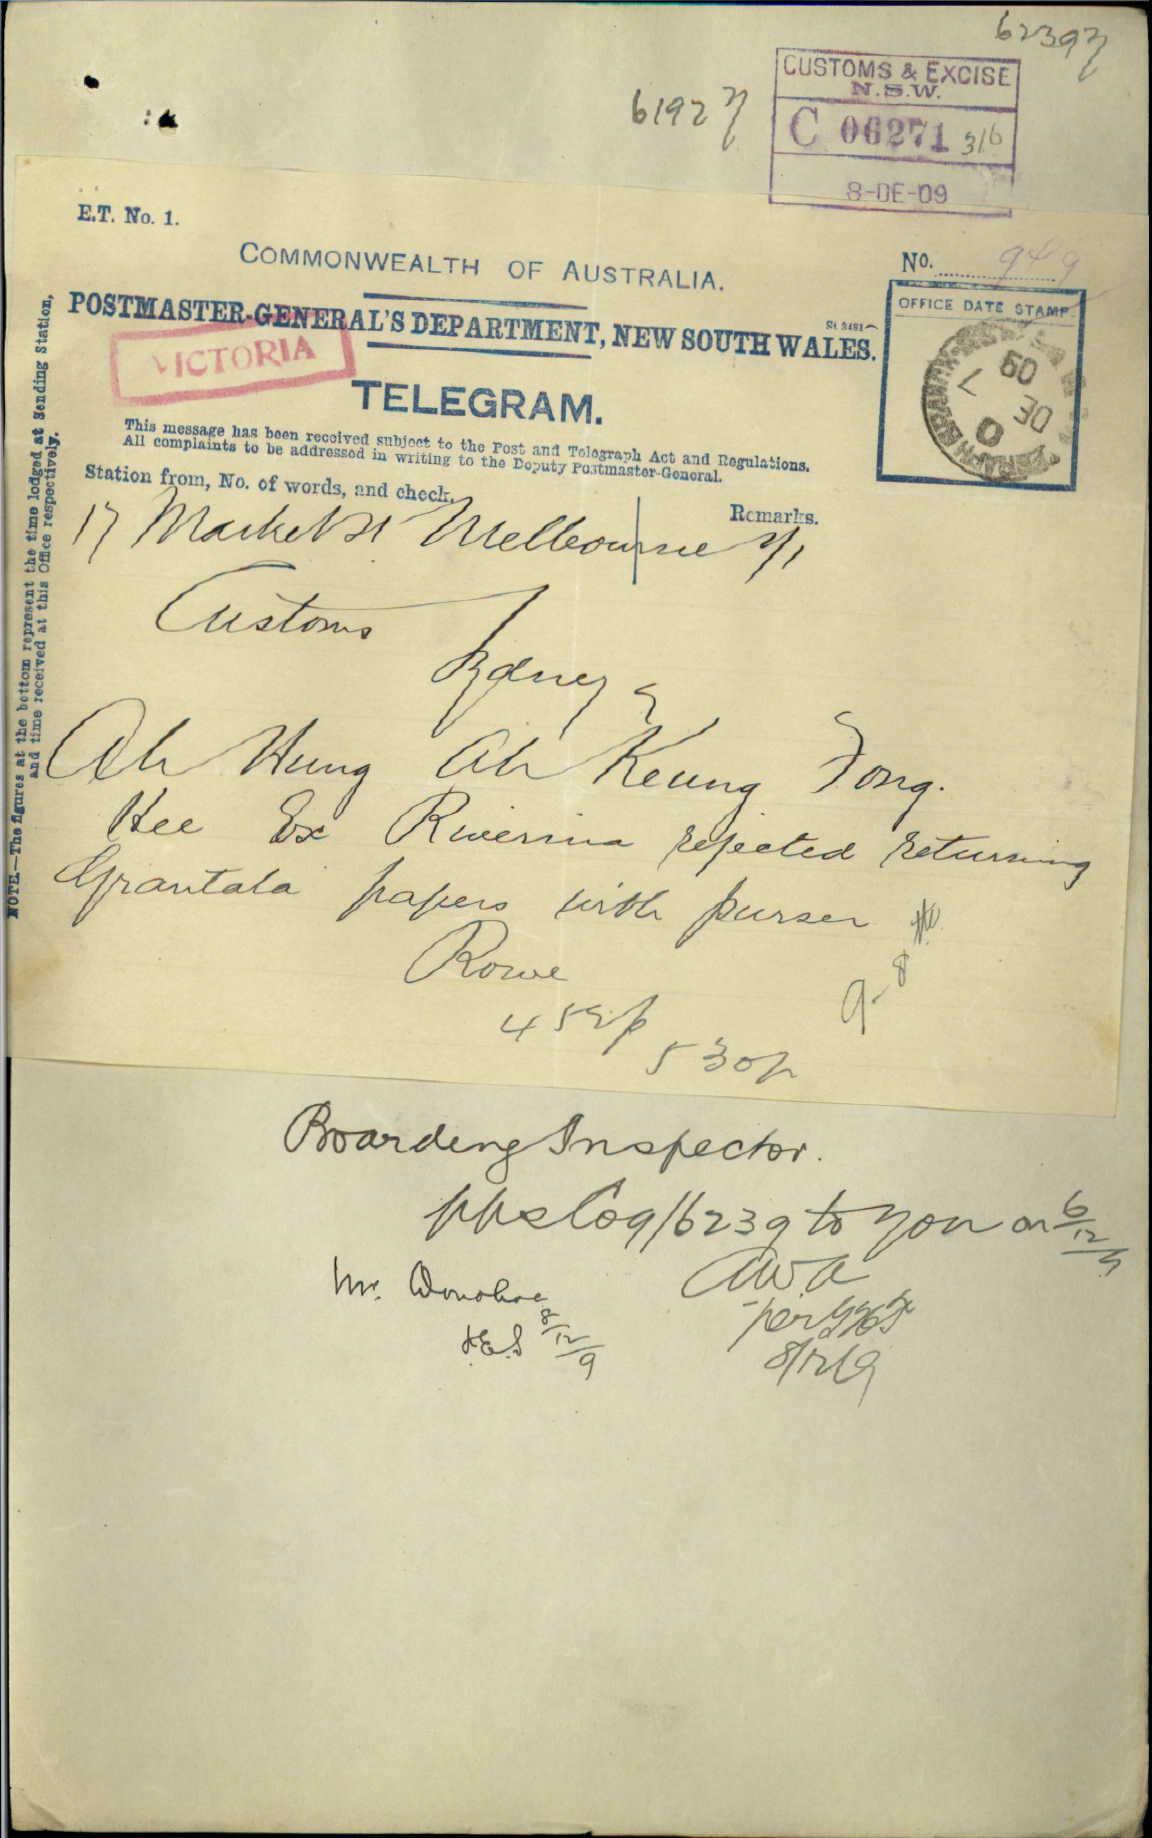 6239
6192
CUSTOMS & EXCISE
N.S.W.
C 06271 316
8-DE-09
E.T. No. 1.
COMMONWEALTH OF AUSTRALIA.
No. 949
POSTMASTER-GENERAL'S DEPARTMENT, NEW SOUTH WALES.
St 3491
VICTORIA
OFFICE DATE STAMP.
7 DE 09
TELEGRAM.
This message has been received subject to the Post and Telegraph Act and Regulations.
All complaints to be addressed in writing to the Deputy Postmaster-General.
Station from, No. of words, and check.
Remarks.
17 Market St Melbourne
Customs
Sydney
Ah Hung Ah Keung Fong.
Hee Ex Riverina rejected returning
Grantala papers with purser
Rowe
4 52p
5 30p
NOTE.—The figures at the bottom represent the time lodged at Sending Station,
and time received at this Office respectively.
Boarding Inspector.
pps C09/6239 to you on 6/12/9
AW.A
per
8/12/9
Mr. Donohoe
8/12/9